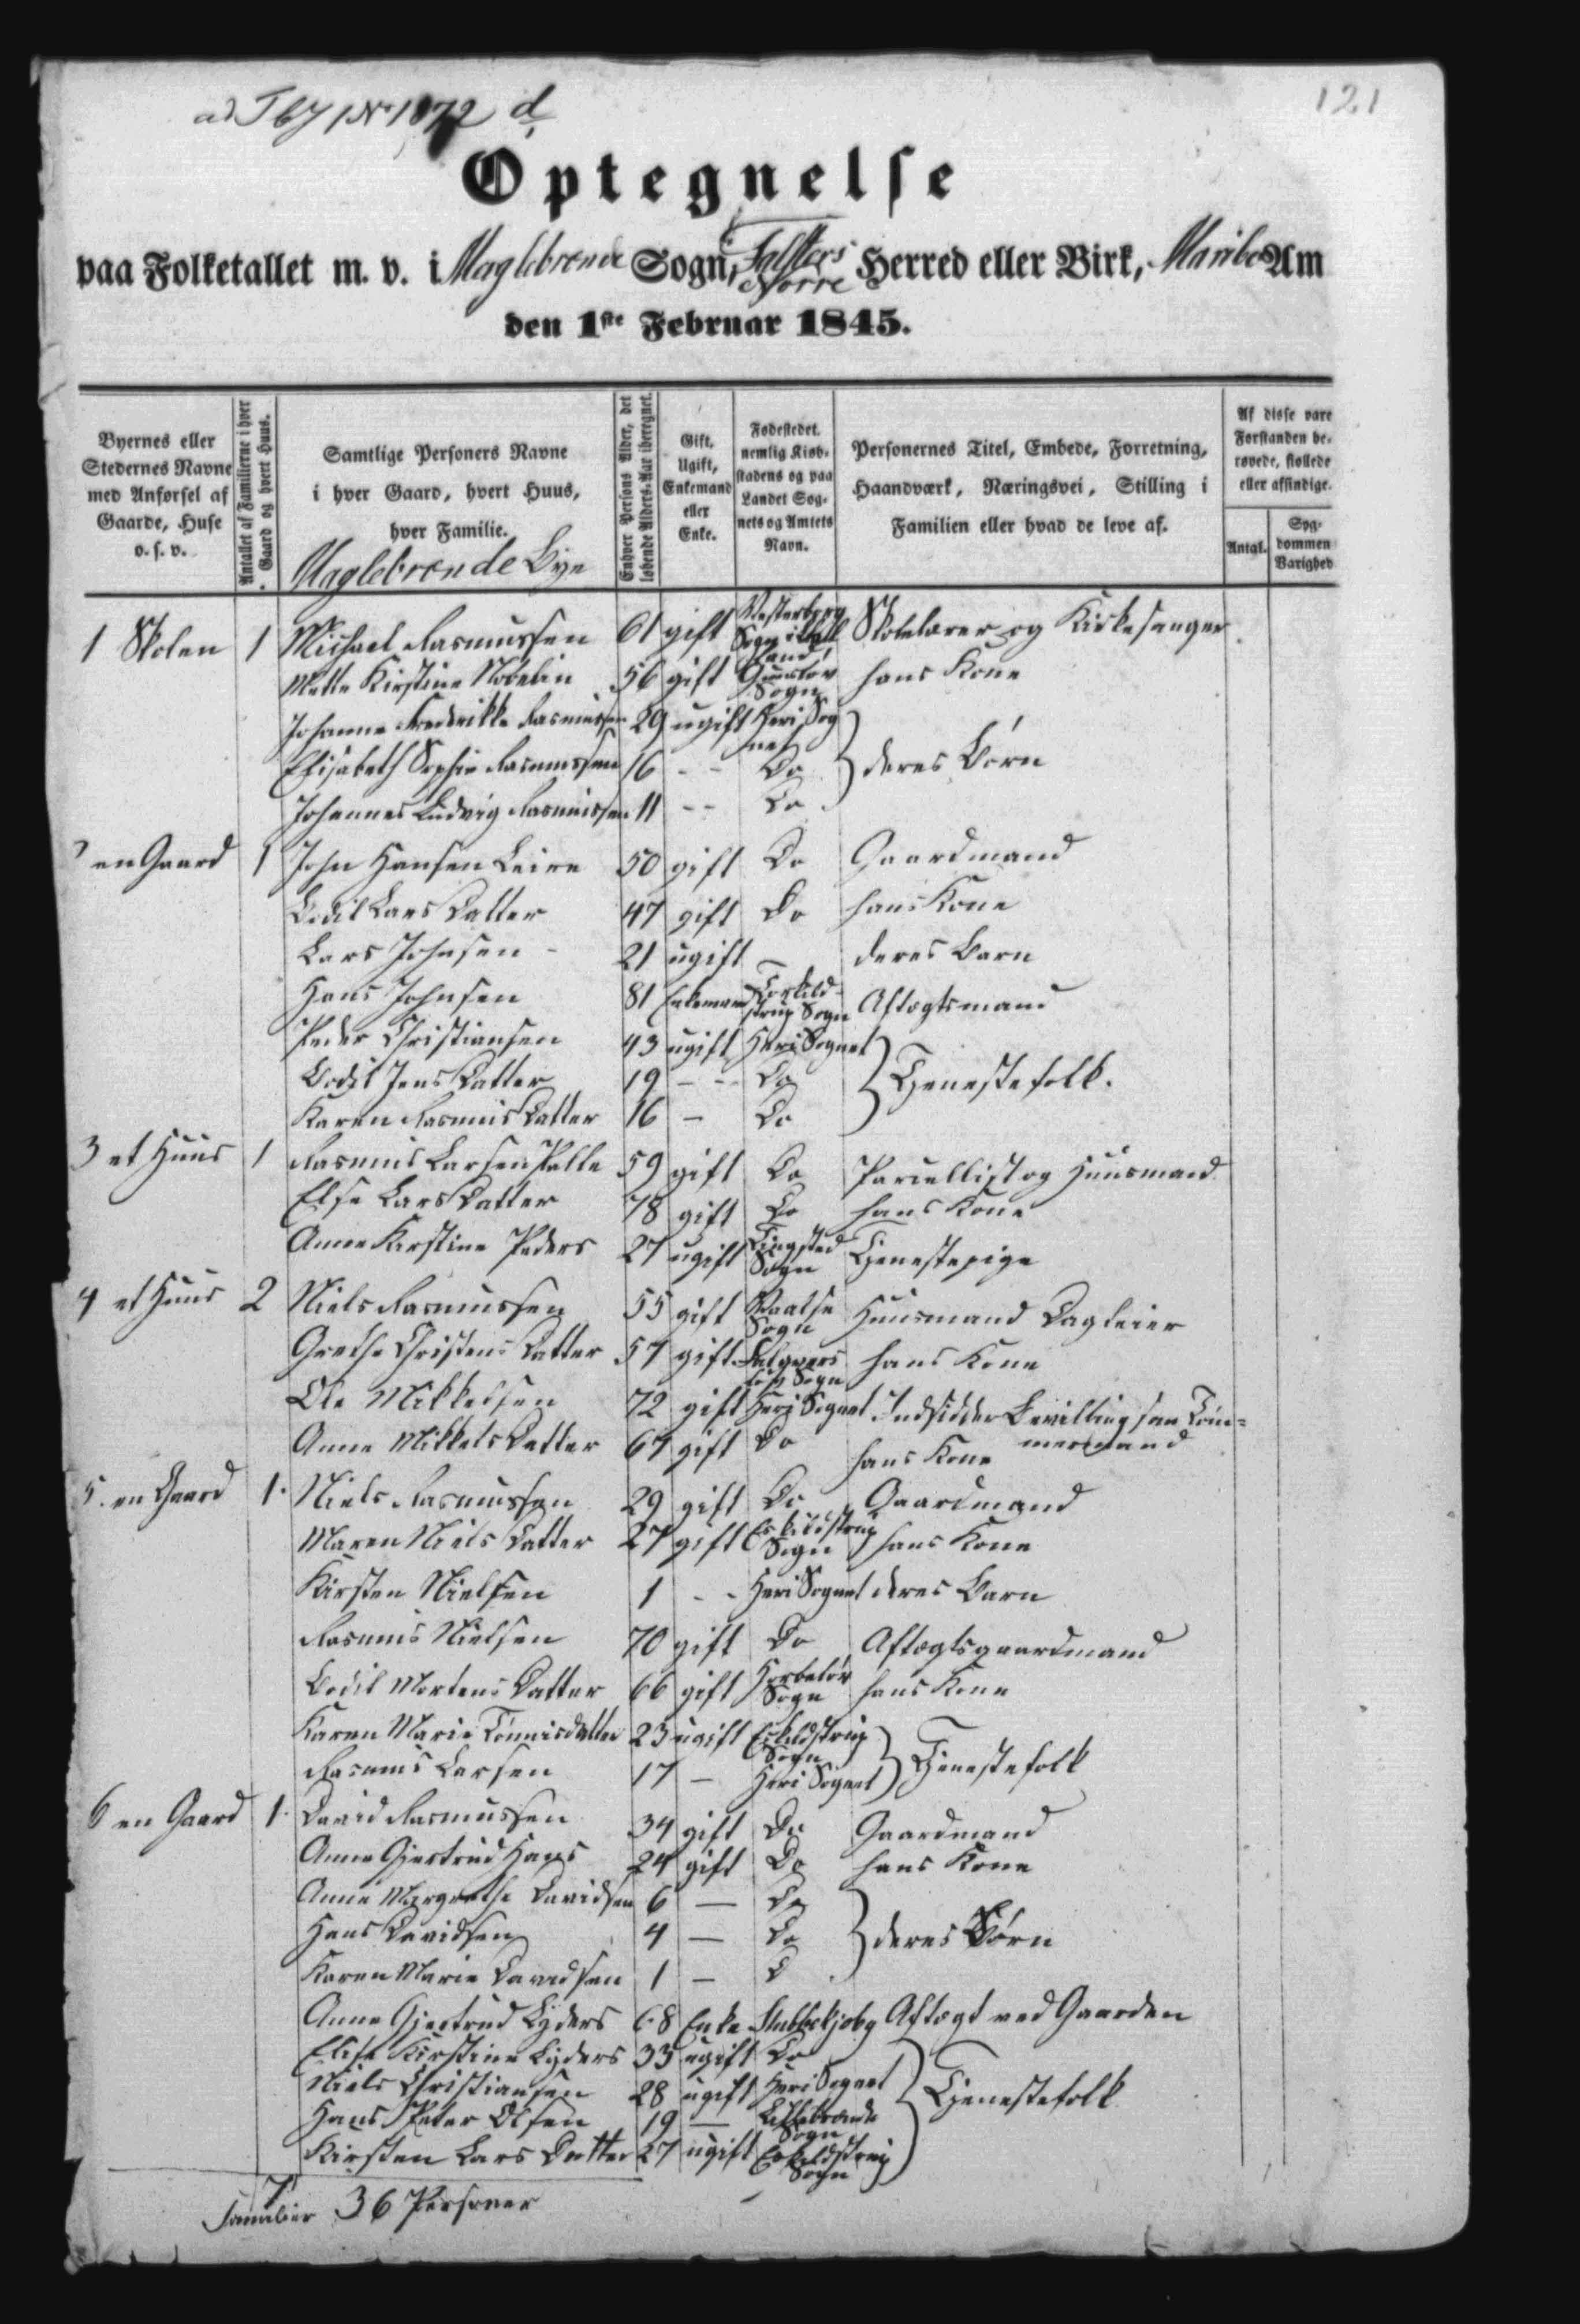 121
Optegnelse
paa Folketallet m. v. i Maglebrende Sogn, Falsters Nørre Herred eller Birk, Maribo Am
den 1ste Februar 1845.
Byernes eller Stedernes Navne med Anførsel af Gaarde, Huse o. s. v.
Antallet af Familierne i hver Gaard og hvert Huus.
Samtlige Personers Navne i hver Gaard, hvert Huus, hver Familie.
Enhver Persons Alder, det løbende Alders-Aar iberegnet.
Gift, Ugift, Enkemand eller Enke.
Fødestedet, nemlig Kiøbstadens og paa Landet Sognets og Amtets Navn.
Personernes Titel, Embede, Forretning, Haandværk, Næringsvei, Stilling i Familien eller hvad de leve af.
Af disse vare Forstanden berøvede, fiollede eller afsindige.
Antal.
Sygdommen Varighed
Maglebrende Bye
1 Skolen 1 Michael Rasmussen 61 gift Vesterborg Sogn i Lolland Skolelærer og Kirkesanger
Mette Kirstine Nobelin 56 gift Sogn hans Kone
Johanne Frederikke Rasmussen 29 ugift Heri Sognet
Elisabeth Sophie Rasmussen 16 - - Do } deres Børn
Johannes Ludvig Rasmussen 11 - - Do
en Gaard 1 John Hansen Leire 50 gift Do Gaardmand
Bodil Lars Datter 47 gift Do hans Kone
Lars Johnsen - 21 ugift deres Barn
Hans Johnsen 81 Enkemand Torkildstrup Sogn Aftægtsmand
Peder Christiansen 43 ugift Heri Sognet
Bodil Jens Datter 19 - - Do } Tjenestefolk.
Karen Rasmus Datter 16 - Do
3 et Huus 1 Rasmus Larsen Palle 59 gift Do Parcellist og Huusmand
Else Lars Datter 78 gift Do hans Kone
Anne Kirstine Peders 27 ugift Tingsted Sogn Tjenestepige
4 et Huus 2 Niels Rasmussen 55 gift Vaalse Sogn Huusmand Dagleier
Grethe Christens Datter 57 gift Sogn hans Kone
Ole Mikkelsen 72 gift Heri Sognet Indsidder Tømmermand
Anne Mikkels Datter 67 gift Do hans Kone
5. en Gaard 1. Niels Rasmussen 29 gift Do Gaardmand
Maren Niels Datter 27 gift Eskildstrup Sogn hans Kone
Kirsten Nielsen 1 - - Heri Sognet deres Barn
Rasmus Nielsen 70 gift Do Aftægtsgaardmand
Bodil Mortens Datter 66 gift Horbelev Sogn hans Kone
Karen Marie Tønnisdatter 23 ugift Eskildstrup Sogn
Rasmus Larsen 17 - Heri Sognet } Tjenestefolk
6 en Gaard 1. David Rasmussen 34 gift Do Gaardmand
Anne Gjertrud Hans 24 gift Do hans Kone
Anne Margrethe Davidsen 6 - Do
Hans Davidsen 4 - Do } deres Børn
Karen Marie Davidsen 1 - D
Anne Gjertrud Lyders 68 Enke Stubbekjøbg Aftægt ved Gaarden
Elise Kirstine Lyders 33 ugift Do
Niels Christiansen 28 ugift Heri Sognet } Tjenestefolk
Hans Peter Olsen 19 - Lillebrende Sogn
Kirsten Lars Datter 27 ugift Eskildstrup Sogn
7 Familier 36 Personer